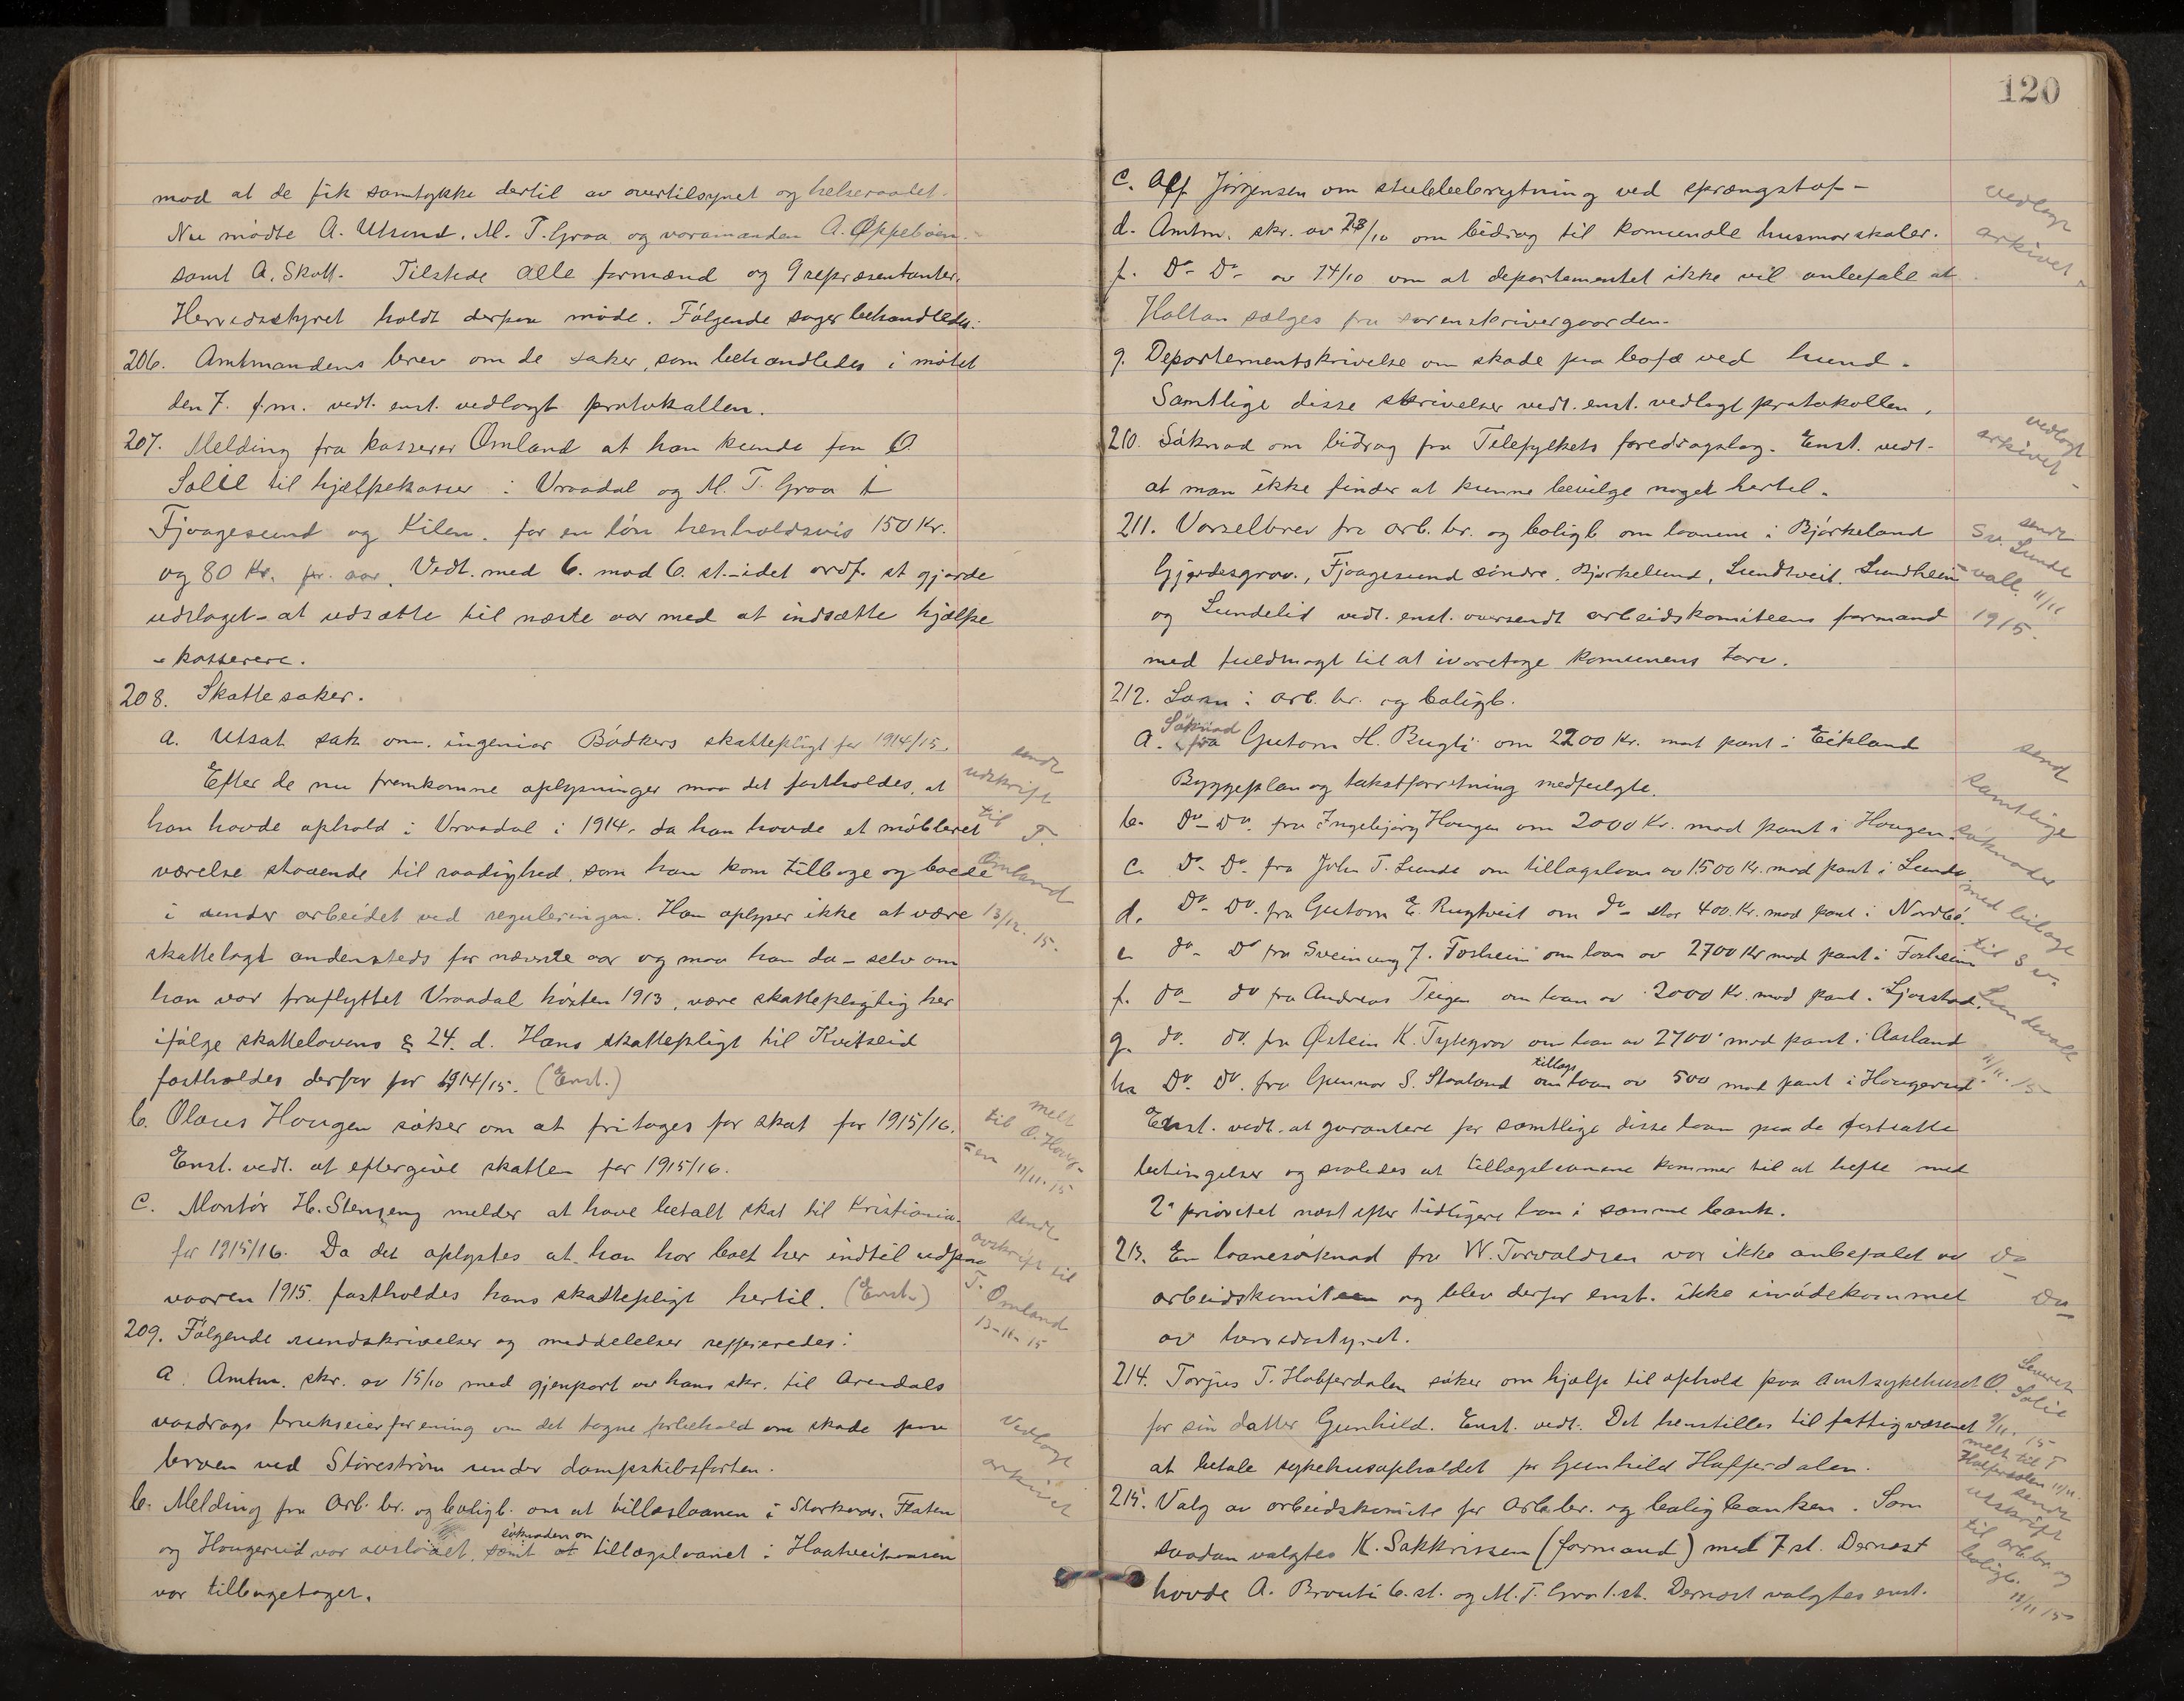 mod at de fik samtykke dertil av overtilsynet og helseraadet.
Nu mødte A. Utsund. M. T. Graa og varamanden A. Øppeboen.
samt A. Skott. Tilstede alle formænd og 9 repræsentanter.
Herredsstyret holdt derpaa møde. Følgende saker behandledes:
206. Amtmandens brev om de saker, som behandledes i møtet
den 7. f.m. vedt. enst. vedlagt protokollen.
207. Melding fra kasserer Omland at han kunde faa O.
Solli til hjælpekasser i Vraadal og M. T. Graa i
Fjaagesund og Kilen. for en løn henholdsvis 150 Kr.
og 80 Kr. pr. aar. Vedt. med 6. mod 6. st. - idet ordf. st gjorde
udslaget - at udsætte til næste aar med at indsætte hjælpe
- kasserere.
208. Skattesaker.
a. Utsat sak om. ingeniør Bødkers skattepligt for 1914/15.
sendt
udskrift
til T.
Omland
13/12. 15.
Efter de nu fremkomne oplysninger maa det fastholdes, at
han havde ophold i Vraadal i 1914, da han havde et møbleret
værelse staaende til raadighed, som han kom tilbage og boede
i under arbeidet ved reguleringen. Han oplyser ikke at være
skattelagt andensteds for nævnte aar og maa han da - selv om
han var fraflyttet Vraadal høsten 1913, være skattepligtig her
ifølge skattelovens § 24. d. Hans skattepligt til Kvitseid
fastholdes derfor for 1914/15. (Enst.)
b. Olaus Haugen søker om at fritages for skat for 1915/16.
melt
til O. Haug-
-en 11/11. 15
Enst. vedt. at eftergive skatten for 1915/16.
c. Montør H. Stenseng melder at have betalt skat til Kristiania.
sendt
avskrift til
T. Omland
13-11-15
for 1915/16. Da det oplystes at han har boet her indtil udpaa
vaaren 1915. fastholdes hans skattepligt hertil. (Enst.)
209. Følgende rundskrivelser og meddelelser reffereredes:
a. Amtm. skr. av 15/10 med gjenpart av hans skr. til Arendals
vasdrags brukseierforening om det tagne forbehold om skade paa
Vedlagt
arkivet
broen ved Støreström under dampskibsfarten.
b. Melding fra Arb. br. og boligb. om at tillægslaanen i Storkaas, Flaten
og Haugerud var avslaaet, samt at søknaden om tillægslaanet i Haatveithausen
var tilbaketaget.
120
c. Alf Jørgensen om stubbebrytning ved sprængstof -
vedlagt
arkivet -
d. Amtm. skr. av 28/10 om bidrag til komunale husmorskoler.
f. Do- Do- av 14/10 om at departementet ikke vil anbefale at
Holtan sælges fra sorenskrivergaarden.
g. Departementskrivelse om skade paa bofæ ved hund.
Samtlige disse skrivelser vedt. enst. vedlagt protokollen.
210. Søknad om bidrag fra Telefylkets foredragslag. Enst. vedt.
vedlagt
arkivet -
at man ikke finder at kunne bevilge noget hertil.
211. Varselbrev fra arb. br. og boligb om laanene i Bjørkeland
sendt
Sv. Lunde
- vall. 11/11
1915.
Gjærdesgrav., Fjaagesund søndre, Bjørkelund, Lundtveit, Lundheim
og Lundelid vedt. enst. oversendt arbeidskomiteens formand
med fuldmagt til at ivaretage komunens tarv.
212. Laan i arb. br. og boligb.
a. Søknad fra Gutorm H. Bugti om 2200 Kr. mot pant i Eikland
Byggeplan og takstforretning medfulgte.
send
samtlige
søknader
med bilage
til Sv.
Lundevall
11/11. 15
b. Do- Do. fra Ingebjørg Haugen om 2000 Kr. mod pant i Haugen.
c. Do- Do. fra John T. Lunde om tillægslaan av 1500 Kr. mod pant i Lunde.
d. Do- Do. fra Gutorm E. Rugtveit om do- stor 400 Kr. mod pant i Nordbø.
e. do- Do fra Sveinung J. Forheim om laan av 2700 Kr mod pant i Forheim
f. do- do fra Andreas Teigen om laan av 2000 Kr. mod pant i Ljosstad.
g. do. do. fra Østein K. Tytegrav om laan av 2700 mod pant i Aasland
h. Do. Do. fra Gunnar S. Staaland om tillægs laan av 500 mod pant i Haugerud.
Enst. vedt. at garantere for samtlige disse laan paa de fastsatte
betingelser og saaledes at tillægslaanene kommer til at hefte med
2. prioritet næst efter tidligere laan i samme bank.
213. En laanesøknad fra W. Torvaldsen var ikke anbefalet av
Do
- Do-
arbeidskomiteen og blev derfor enst. ikke imødekommet
av herredsstyret.
214. Torjus T. Hafferdalen søker om hjælp til ophold paa Amtsykehuset
Leveret
O. Solli
9/11. 15
melt til T
Hafferdalen 11/11.
for sin datter Gunhild. Enst. vedt. Det henstilles til fattigvæsenet
at betale sykehusopholdet for Gunhild Hafferdalen.
215. Valg av arbeidskomite for Arb. br. og boligbanken. Som
sendt
utskrift
til arb. br. og
boligb.
11/11 15
saadan valgtes K. Sakkrissen (formand) med 7 st. Dernæst
havde A. Brauti 6. st. og M. T. Graa 1. st. Dernæst valgtes enst.